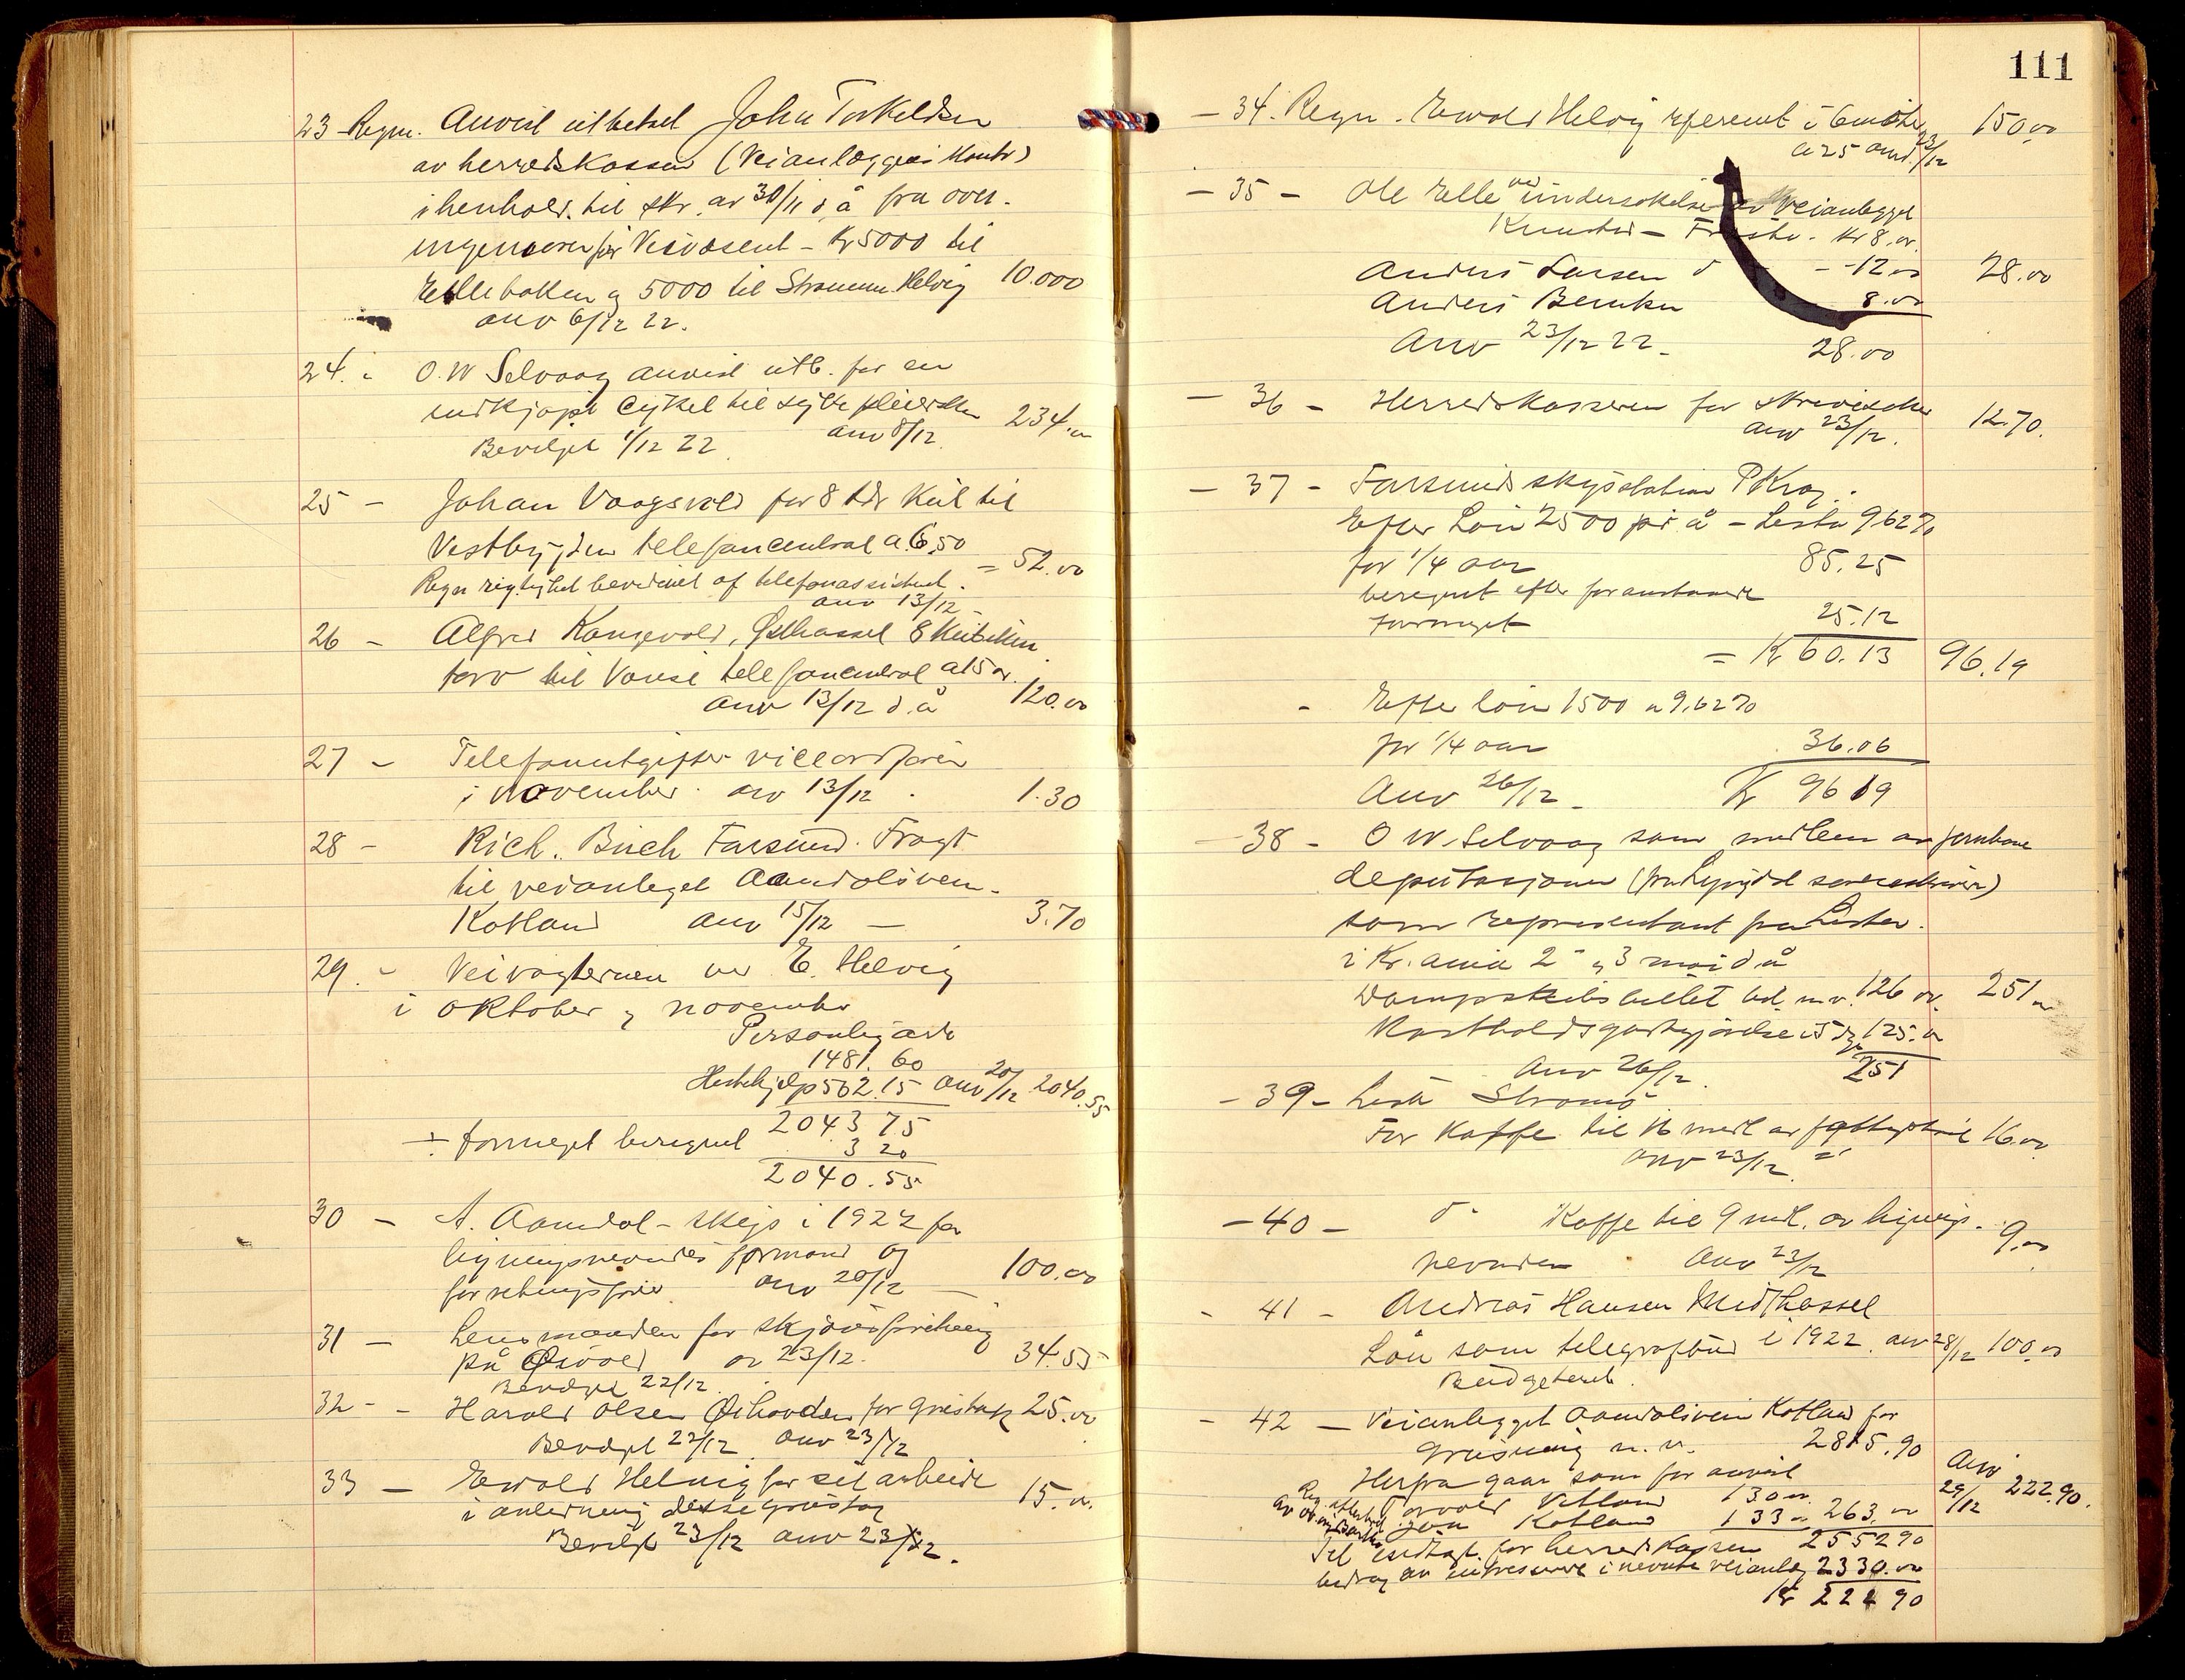 23 Regn. Anvist utbetal John Torkeldsen
av herredskassen (Veianlæggets Konto)
i henhold til skr. av 30/11 d.å fra over-
ingeniøren for Veivæsent - Kr 5000 til
Ellebakken og 5000 til Strømmen Helvig 10.000
anv 6/12 22.
24. - O. W Selvaag anvist utb. for en
indkjøpt Cykel til sykepleiersken 234.00
Bevilget 1/12 22. anv 8/12
25 - Johan Vaagsvold for 8 hl Kul til
Vestbygden telefoncentral a 6.50 = 52.00
Regn rigtighet bevidnet af telefonassistent.
anv 13/12 -
26 - Alfred Kongevold, Østhassel 8
torv til Vanse telefoncentral a 15 00
anv 13/12 d.å 120.00
27 - Telefonutgifter viceordfører
i November. anv 13/12. 1.30
28 - Rich. Buch Farsund. Fragt
til veianleget Aamdolsvein-
Kotland anv 15/12 - 3.70
29. - Veivogterne ved E. Helvig
i oktober og november
Personlig arb
1481.60
Hestehjelp 562.15 anv 20/12 2040.55
2043 75
÷ formeget beregnet 3 20
2040.55
30 - A. Aamdal - skyss i 1922 for
ligningsnevndes formand og
forretningsfører anv 20/12 - 100.00
31 - Lensmanden for skjønsforretning
på Øivold av 23/12. 34.55
Bevilget 22/12.
32 - - Harald Olsen Ørhovden for grustak 25.00
Bevilget 22/12 anv 23/12
33 - Ewald Helvig for sit arbeide
i anledning dette grustag 15.00
Bevilget 23/12 anv 23/12.
111
- 34. Regn. Ewald Helvig referent i 6 møter 150.00
a 25 anv. 23/12
- 35 - Ole Elle ved undersøkelse av veianlegget
Kr 8.00
Anders Larsen do - - 12.00 28.00
Anders Bernken 8.00
Anv 23/12 22. 28.00
- 36 - Herredskasseren for skrivesaker
anv 23/12. 12.70.
- 37 - Farsunds skysstation P Krog.
Efter Løn 2500 pr å - Lista 9.62 %
for 1/4 aar 85.25
beregnet efter foranstaaende
formeget 25.12
= Kr 60.13 96.19
- Efter løn 1500 a 9.62 %
for 1/4 aar 36.06
Anv 26/12. Kr 96 19
- 38 - O W. Selvaag som medlem av jernbane
deputasjonen
som representant fra Lister.
i Kr.ania 2 og 3 mai d å
Dampskibsbillet m.v. 126.00 251.00
Kostholdsgodtgjørelse i 5 dg 125.00
Anv 26/12. 251
- 39 - Lista Strømø
For Kaffe til 16 medl av fattigstyret 16.00
anv 23/12.
- 40 - do Kaffe til 9 medl. av lignings-
nevnden Anv 23/12 9.00
- 41 - Andreas Hansen Midthassel
Løn som telegrafbud i 1922. anv 28/12 100.00
Budgeteret.
- 42 - Veianlegget Aamdolsvein Kotland for
grusning m.v. 2815.90
Herfra gaar som før anvist Anv 29/12 222.90.
Torvald Vatland 130.00
Jon Kotland 133.00 263.00
Til indtægt for herredskassen 2552 90
bidrag av interesserte i nevnte veianlæg 2330.00
Kr 222 90